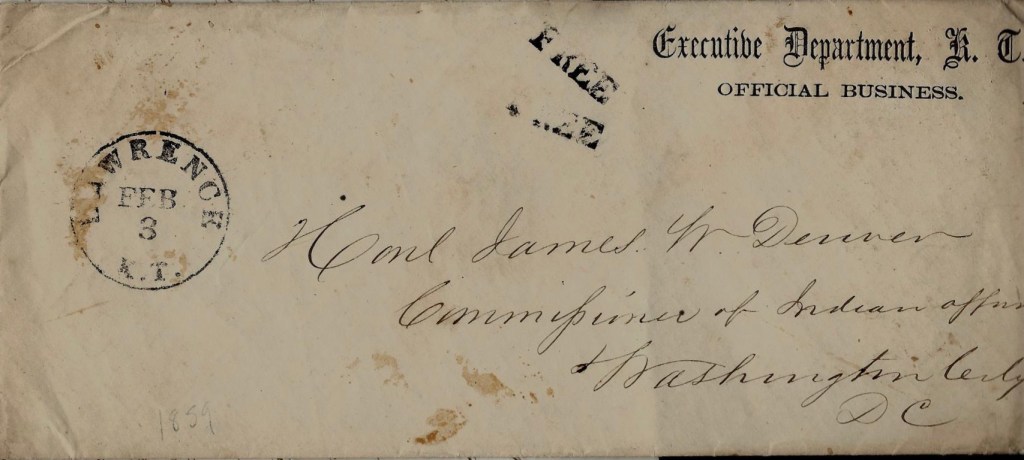 Executive Department, K. T.
OFFICIAL BUSINESS.
FREE
FREE
LAWRENCE
FEB
3
K.T.
Honl James W Denver
Commissioner of Indian affai
Washington City
D C
1859